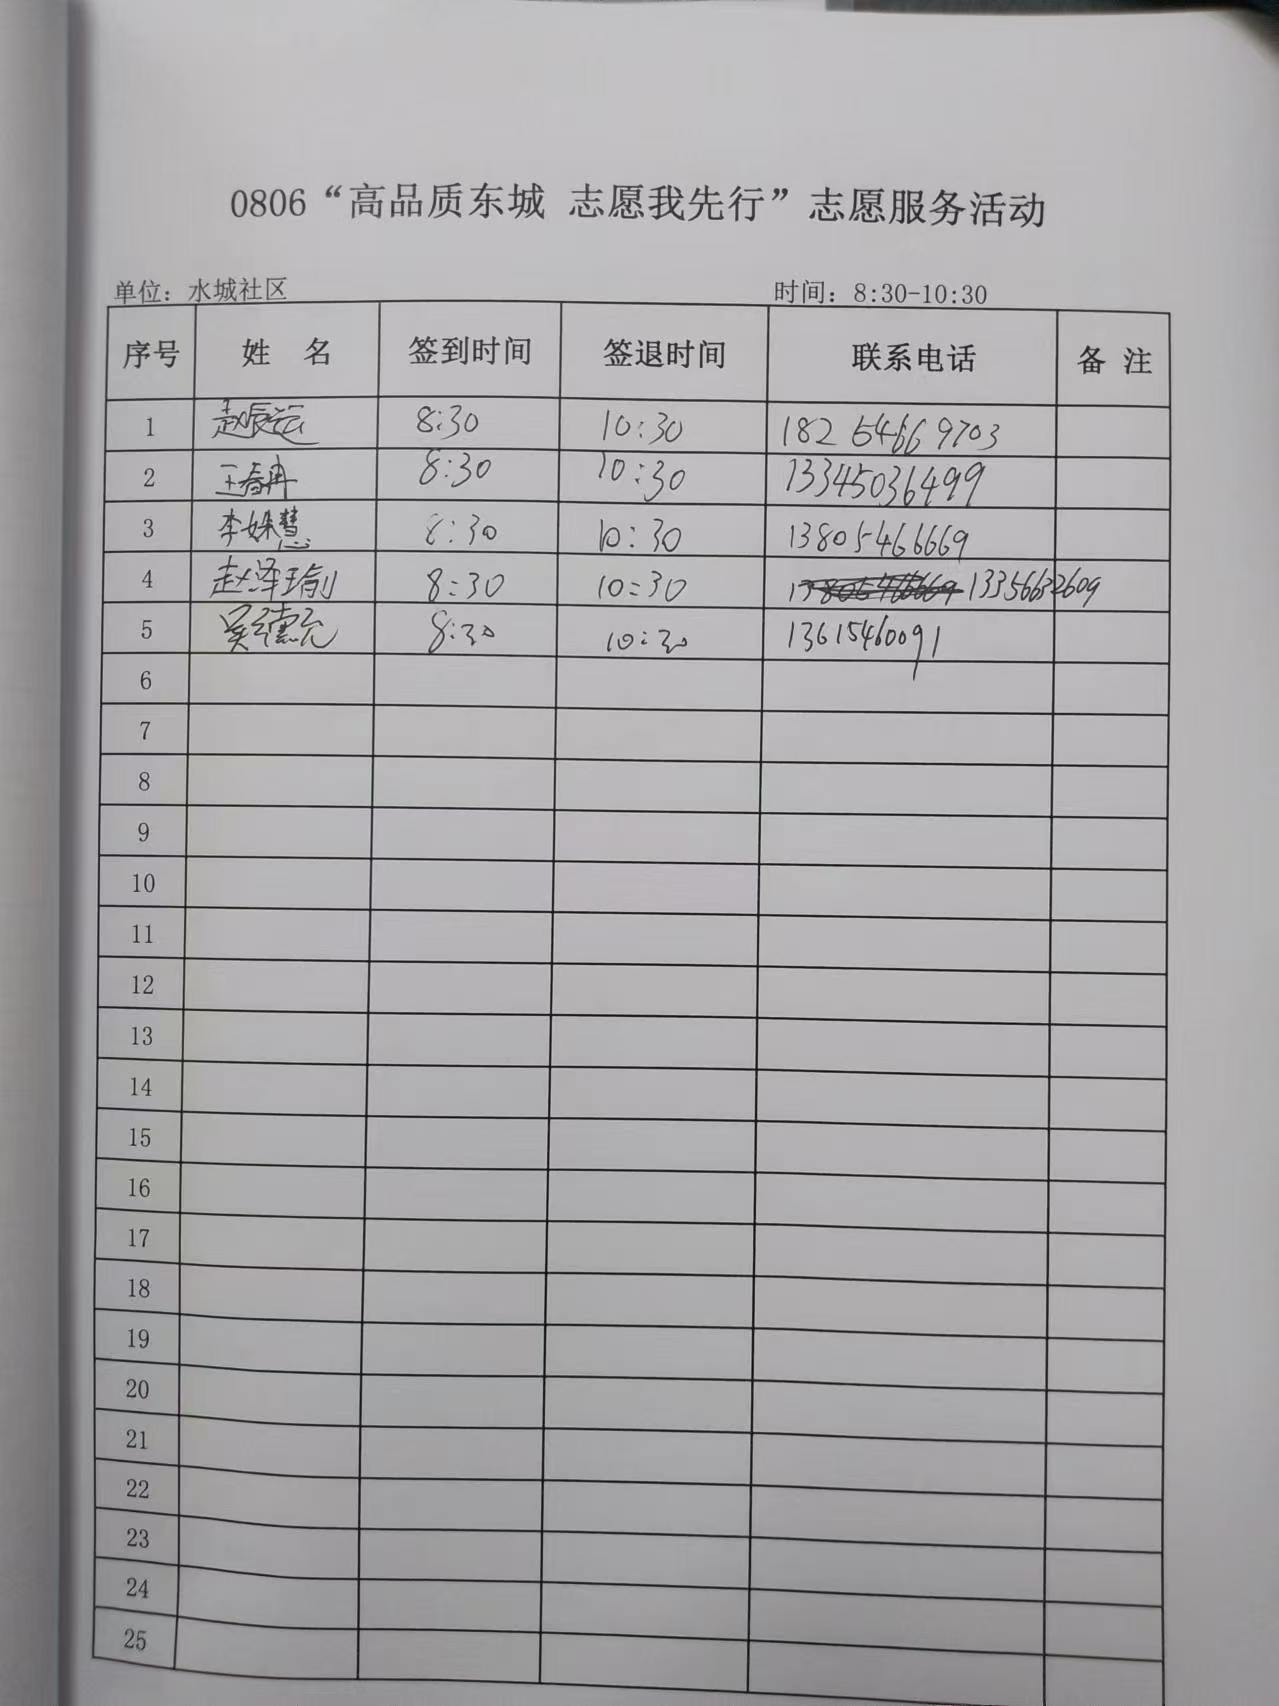 0806“高品质东城 志愿我先行”志愿服务活动
单位：水城社区 时间：8:30-10:30
序号 姓 名 签到时间 签退时间 联系电话 备 注
1 赵辰运 8:30 10:30 18254669703
2 王春冉 8:30 10:30 13345036499
3 李姝慧 8:30 10:30 13805466669
4 赵泽瑜 8:30 10:30 13805466669 13356632609
5 吴德元 8:30 10:30 13615460091
6
7
8
9
10
11
12
13
14
15
16
17
18
19
20
21
22
23
24
25